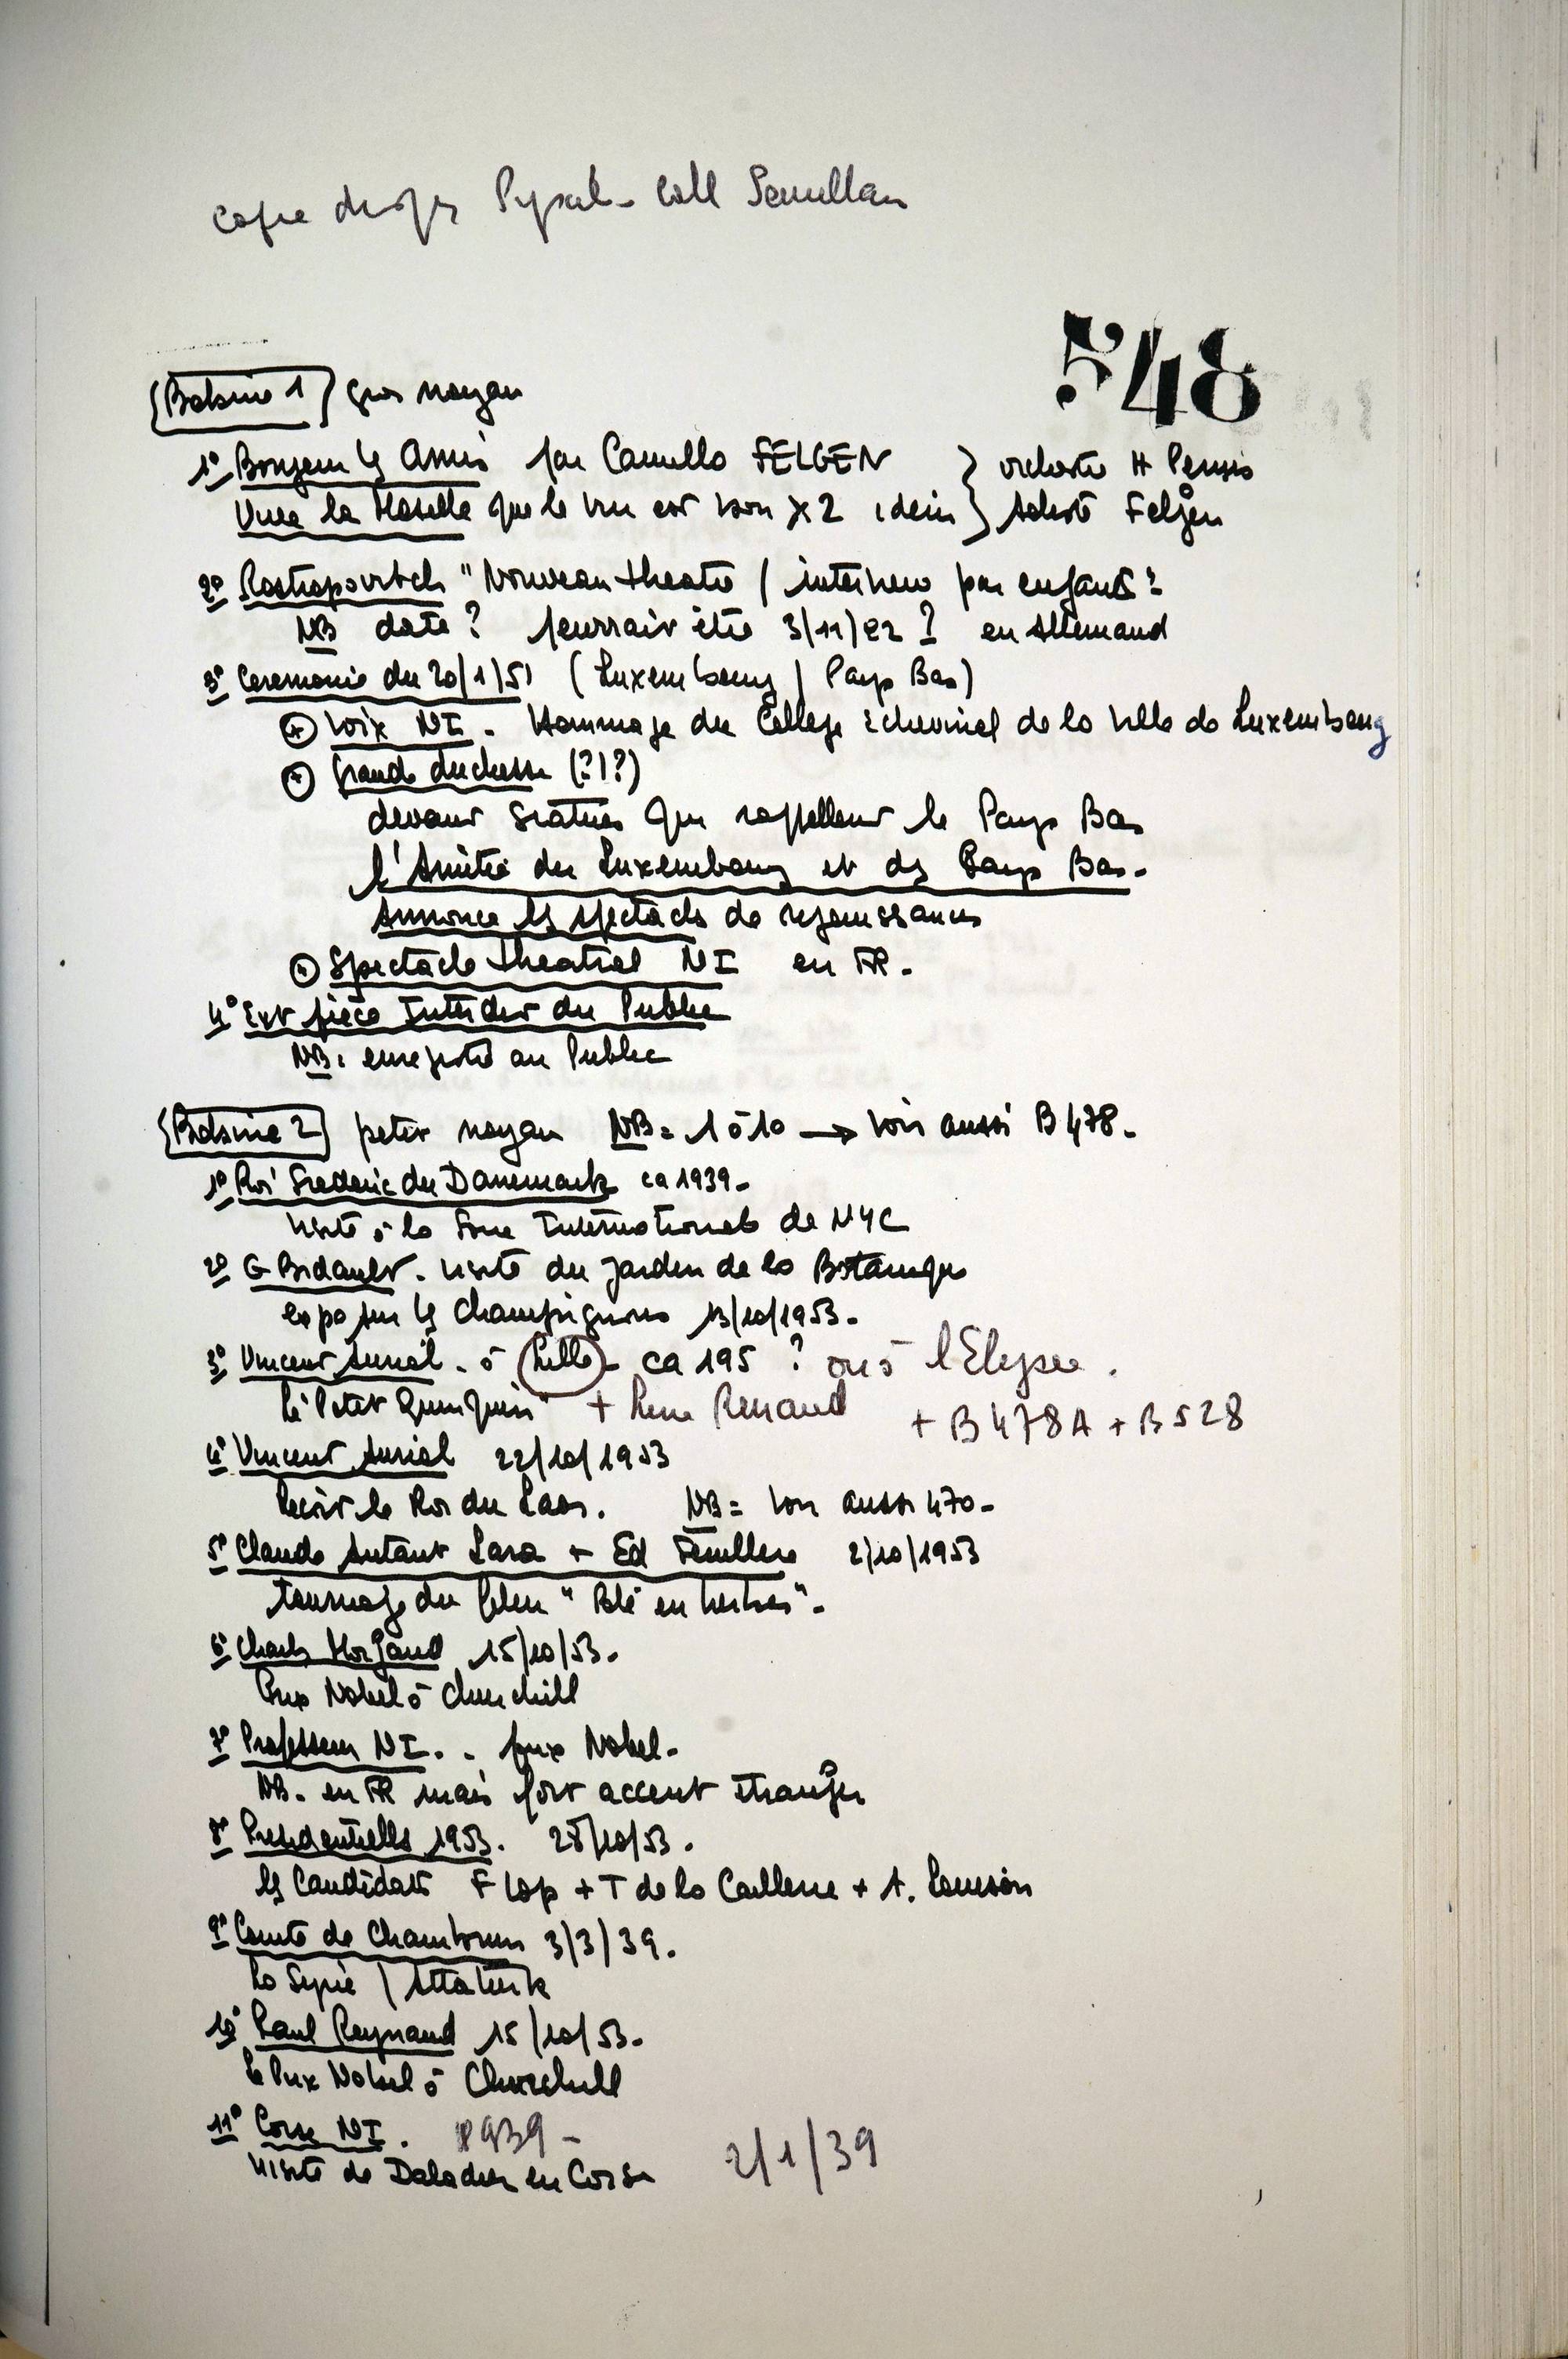 copie disques Pyral - Coll Semullan
548
Bobine 1 gros noyau
1° Bonjour les Amis par Camillo FELGEN } orchestre H Pensis
Vive la Moselle que le vin est bon x 2 idem } soliste Felgen
2° Rostropovitch "Nouveau theatre / interview par enfants ?
NB date ? pourrait être 3/11/82 ? en Allemand
3° Ceremonie du 20/1/51 (Luxembourg / Pays Bas)
Voix NI - Hommage du College Echevinal de la Ville de Luxembourg
Grande duchesse (?!?)
devant statues qui rappellent le Pays Bas
l'Amitié du Luxembourg et des Pays Bas -
Annonce les spectacles de rejouissances
Spectacle theatral NI en FR -
4° Ext pièce Interdit du Public
NB : enregistré au Public
Bobine 2 petit noyau NB = 1 à 10 → Voir aussi B 478 -
1° Roi Frederic du Danemark ca 1939 -
Visite à la Foire Internationale de NYC
2° G Bidault - Visite du jardin de la Botanique
expo sur les Champignons 13/10/1953 -
3° Vincent Auriol - à Lille - ca 195 ? ou à l'Elysée .
Le "Petit Quinquin" + Line Renaud + B 478A + B 528
4° Vincent Auriol 22/10/1953
Reçoit le Roi du Laos . NB = Voir aussi 470 -
5° Claude Autant Lara + Ed Feuillere 2/10/1953
tournage du film "Blé en herbes" -
6° Charles Morgand 15/10/53 -
Prix Nobel à Churchill
7° Professeur NI . - prix Nobel -
NB - en FR mais fort accent étranger
8° Presidentielles 1953 . 28/10/53 .
les Candidats F Lop + T de la Caillerie + A.
9° Comte de Chambrun 3/3/39 .
La Syrie / Attaturk
10° Paul Reynaud 15/10/53 -
Le Prix Nobel à Churchill
11° Corse NI . 1939 -
Visite de Daladier en Corse 2/1/39